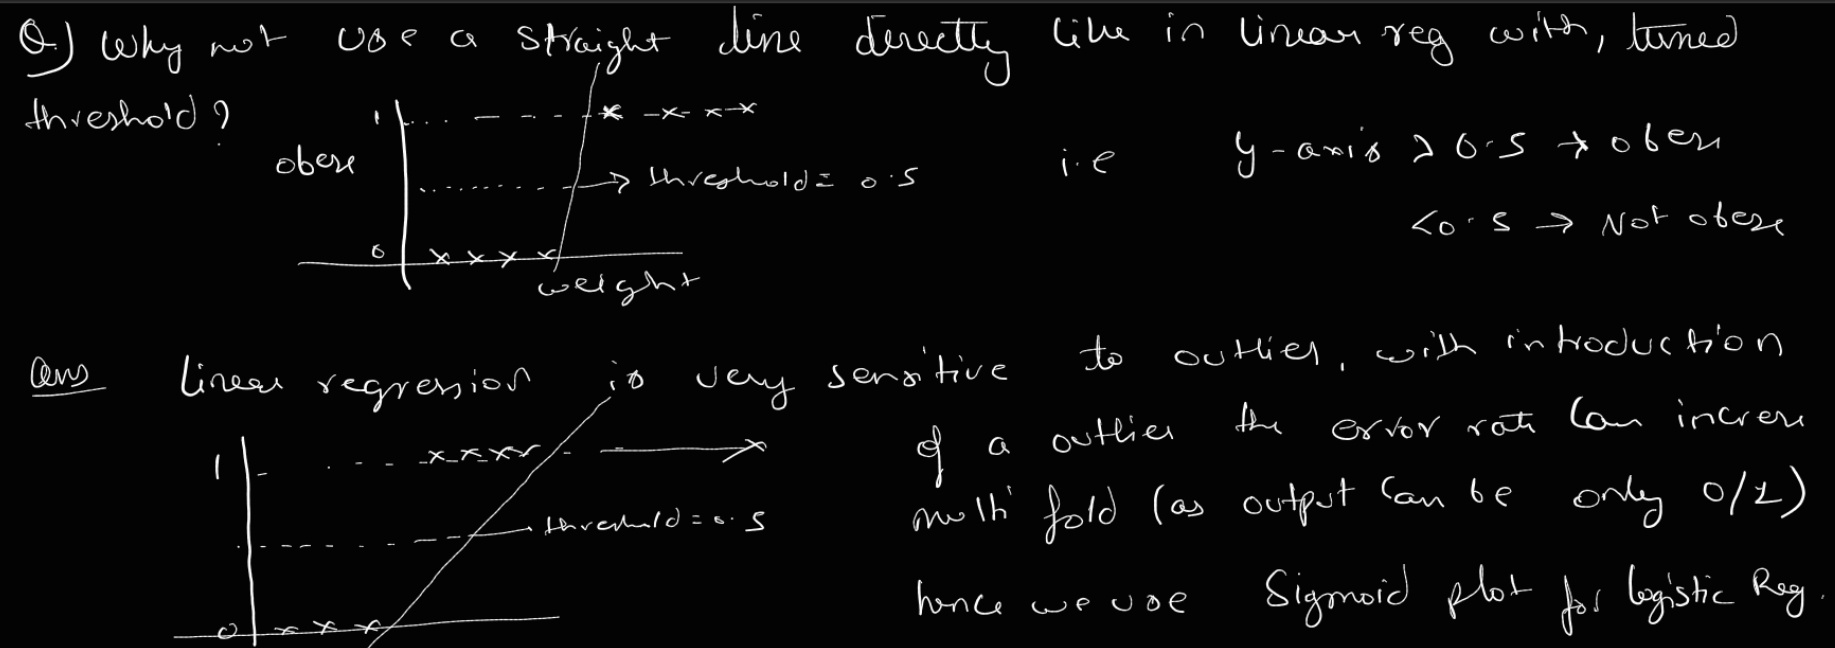 Q.) Why not use a straight line directly like in linear reg with, tuned
threshold?
1
obese
threshold = 0.5
i.e y-axis > 0.5 → obese
<0.5 → Not obese
0
weight
Ans linear regression is very sensitive to outlier, with introduction
of a outlier the error rate can increase
multi fold (as output can be only 0/1)
1
threshold = 0.5
hence we use Sigmoid plot for logistic Reg.
0